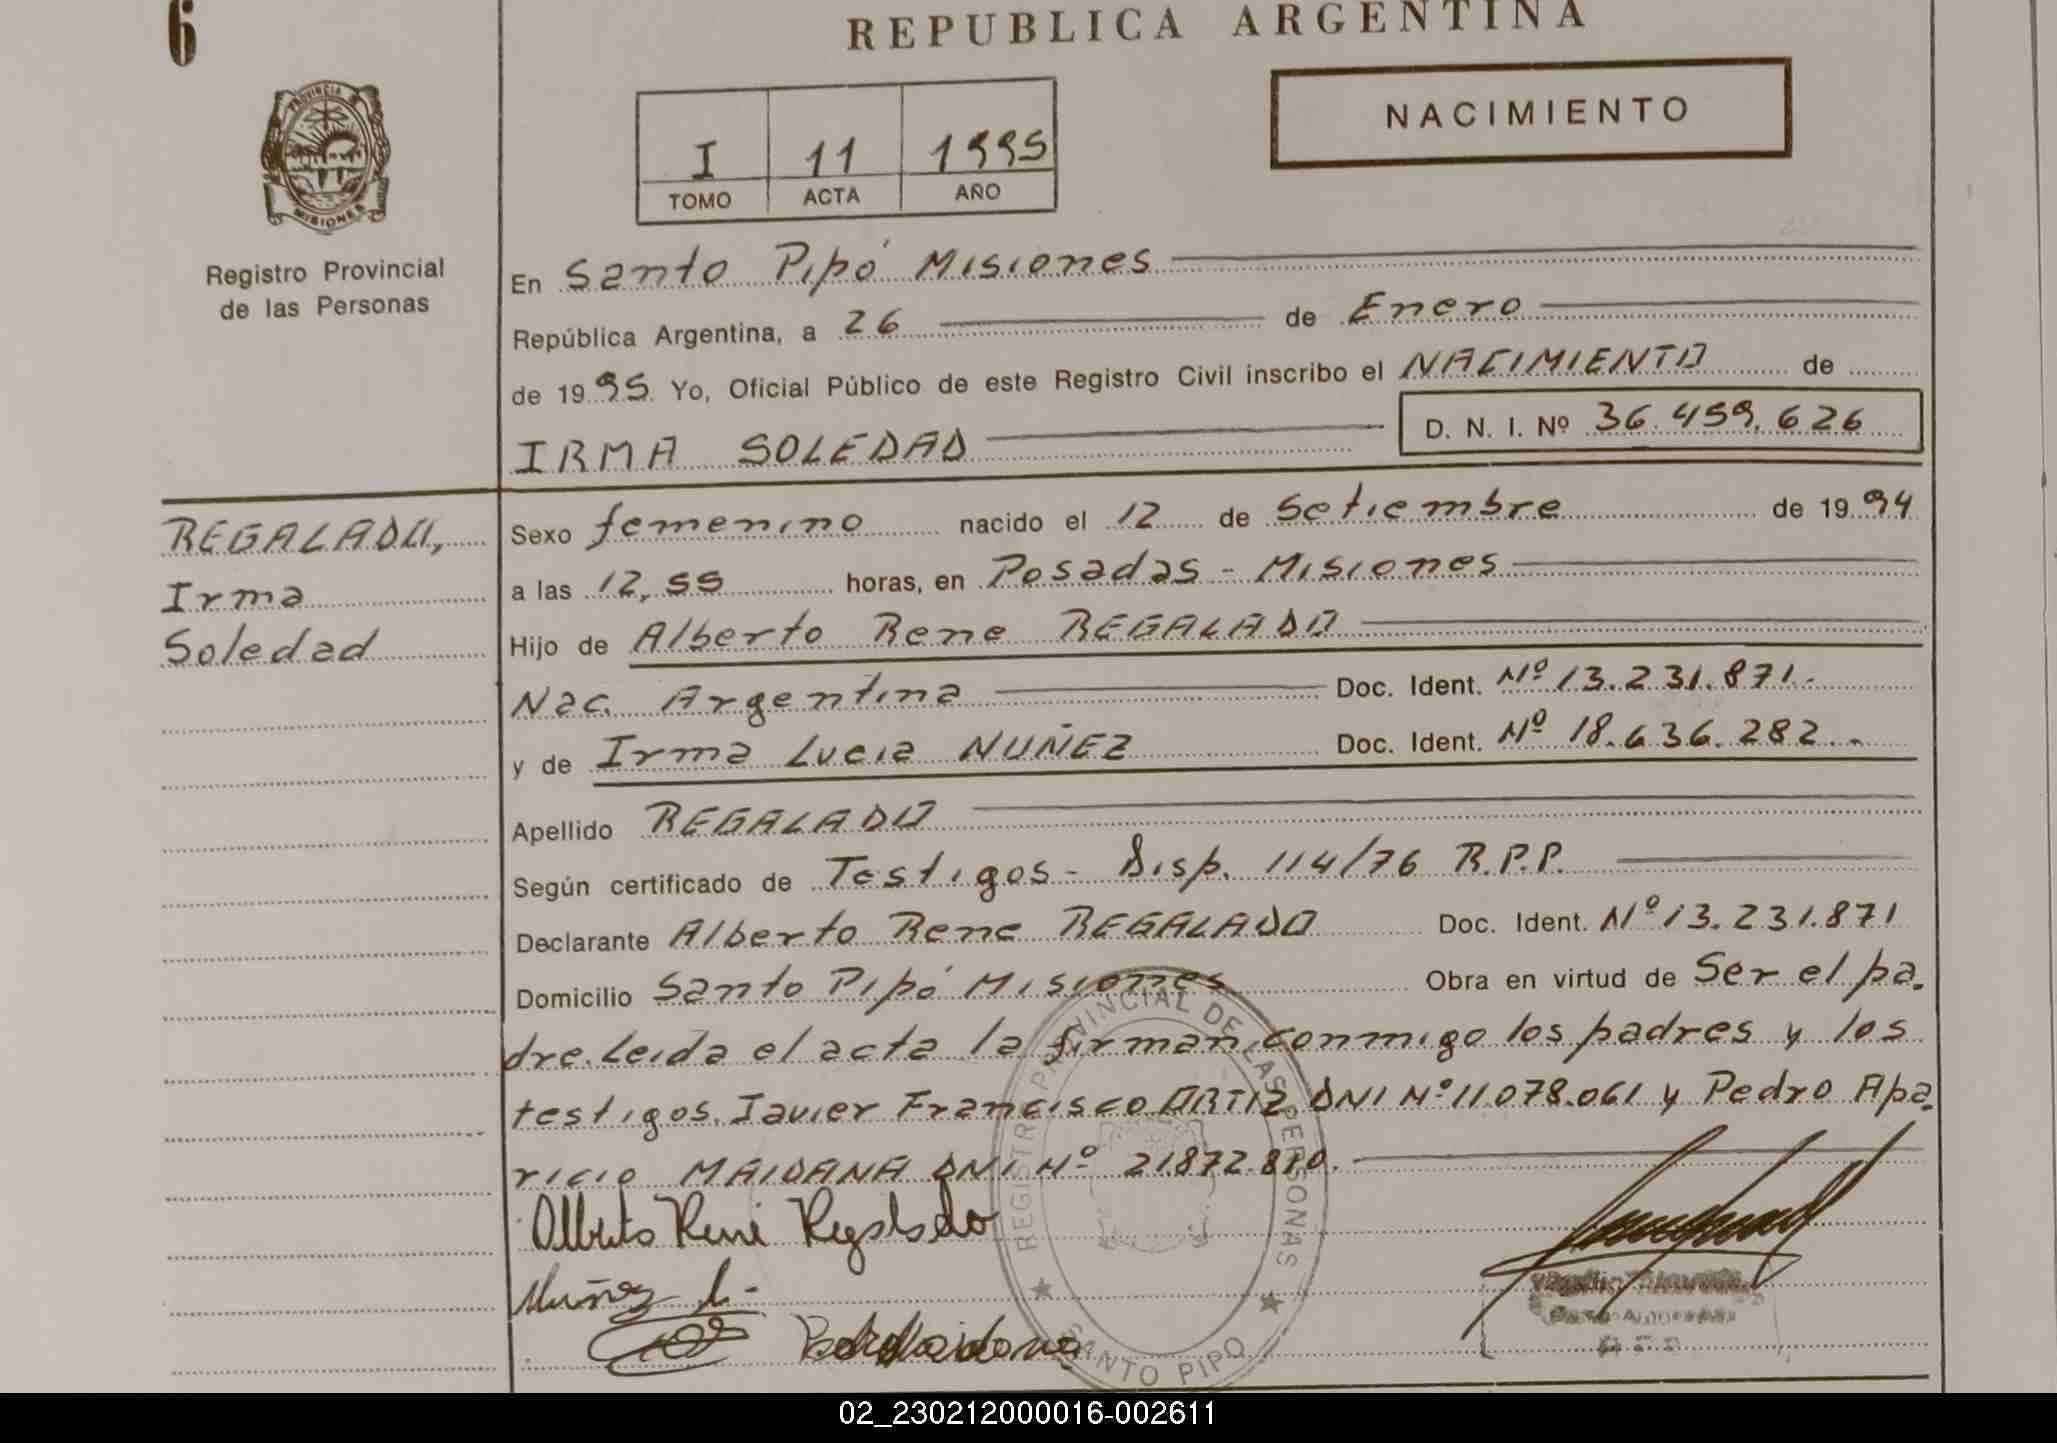 6
REPUBLICA ARGENTINA
PROVINCIA DE
MISIONES
I 11 1995
TOMO ACTA AÑO
NACIMIENTO
Registro Provincial
de las Personas
En Santo Pipó Misiones
República Argentina, a 26 de Enero
de 1995 Yo, Oficial Público de este Registro Civil inscribo el NACIMIENTO de
IRMA SOLEDAD D. N. I. Nº 36.459.626
REGALADO,
Irma
Soledad
Sexo femenino nacido el 12 de Setiembre de 1994
a las 12,55 horas, en Posadas - Misiones
Hijo de Alberto Rene REGALADO
Nac. Argentina Doc. Ident. Nº 13.231.871.-
y de Irma Lucia NUÑEZ Doc. Ident. Nº 18.636.282.-
Apellido REGALADO
Según certificado de Testigos - Disp. 114/76 R.P.P.
Declarante Alberto Rene REGALADO Doc. Ident. Nº 13.231.871
Domicilio Santo Pipó Misiones Obra en virtud de Ser el pa-
dre. Leida el acta la firman conmigo los padres y los
testigos. Javier Francisco ORTIZ DNI Nº 11.078.061 y Pedro Apa-
ricio MAIDANA DNI Nº 21.872.870.
Alberto René Regalado
Nuñez L.
Pedro Maidana
REGISTRO PROVINCIAL DE LAS PERSONAS
SANTO PIPO
02_230212000016-002611